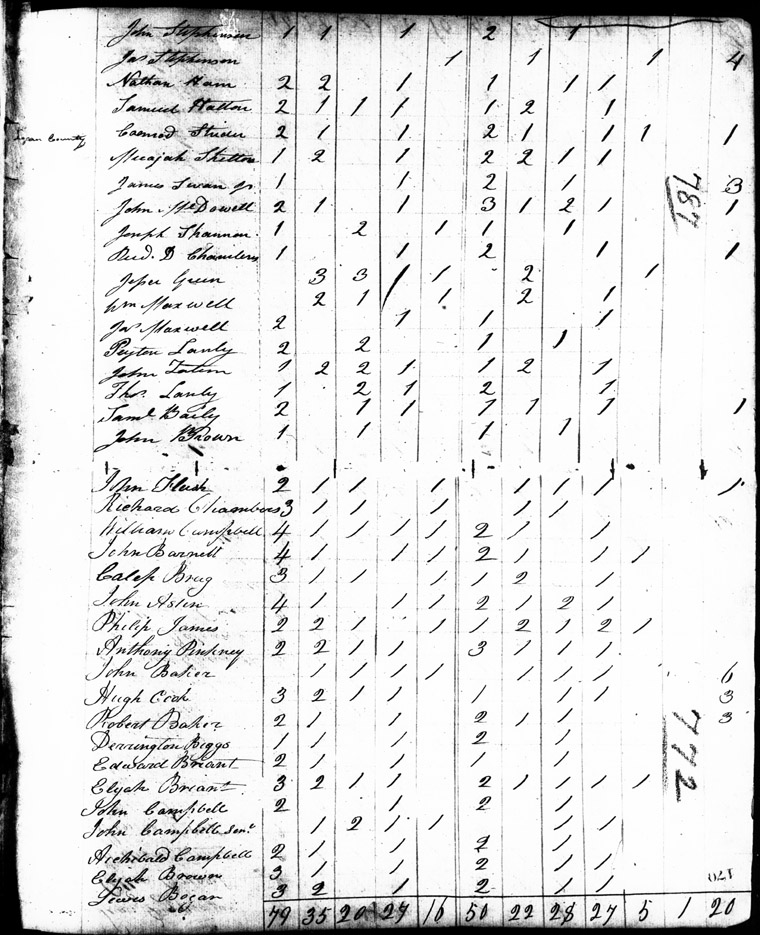 John Stephenson 1 1 1 2 1
Jas Stephenson 1 1 1 4
Nathan Ham 2 2 1 1 1 1
Samuel Hatton 2 1 1 1 1 2 1
Logan County
2 1 1 2 1 1 1 1
Micajah Shelton 1 2 1 2 2 1 1
James Swan Jr 1 1 2 1 3
John McDowell 2 1 1 3 1 2 1 1
787
Joseph Shannon 1 2 1 1 1
D Chambers 1 1 2 1 1
Jesse Green 3 3 1 1 2 1
Wm Maxwell 2 1 1 2 1
Jas Maxwell 2 1 1 1
Peyton Lanly 2 2 1 1
John Tatum 1 2 2 1 1 2 1
Thos. Lanly 1 2 1 2 1
Saml. Baily 2 1 1 1 1 1 1
John Brown 1 1 1 1
John 2 1 1 1 1 1 1 1
Richard Chambers 3 1 1 1 1 1
William Campbell 4 1 1 1 1 2 1 1
John Barnett 4 1 1 1 2 1 1 1
Caleb 3 1 1 1 1 2 1
John 4 1 1 1 2 1 2 1
Philip James 2 2 1 1 1 2 1 2 1
Anthony Pinkney 2 2 1 1 3 1 1 1
John Baker 1 1 1 1 1 1 1 6
Hugh Cook 3 2 1 1 1 1 1 3
Robert Baker 2 1 1 2 1 1 3
Derrington Biggs 1 1 1 2 1
772
Edward Briant 2 1 1 1 1
Elijah Briant 3 2 1 1 2 1 1 1 1
John Campbell 2 1 2 1
John Campbell Senr 1 2 1 1 1 1
Archibald Campbell 2 1 1 2 1 1
Elijah Brown 3 1 1 2 1 1
170
Lewis Bogan 3 2 1 2 1 1
79 35 20 27 16 50 22 28 27 5 1 20